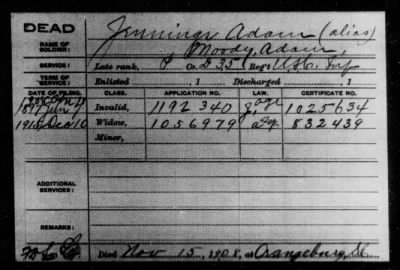 DEAD
Jennings Adam (alias)
NAME OF SOLDIER:
Moody, Adam,
SERVICE:
Late rank, P Co. D, 35 Reg't U.S.C. Inf
TERM OF SERVICE:
Enlisted , 1 Discharged , 1
DATE OF FILING. CLASS. APPLICATION NO. LAW. CERTIFICATE NO.
Invalid, 1192340 age 1025634
1918 Dec 10 Widow, 1056979 832439
Minor,
ADDITIONAL SERVICES:
REMARKS:
Died Nov 15, 1908, at Orangeburg, SC.